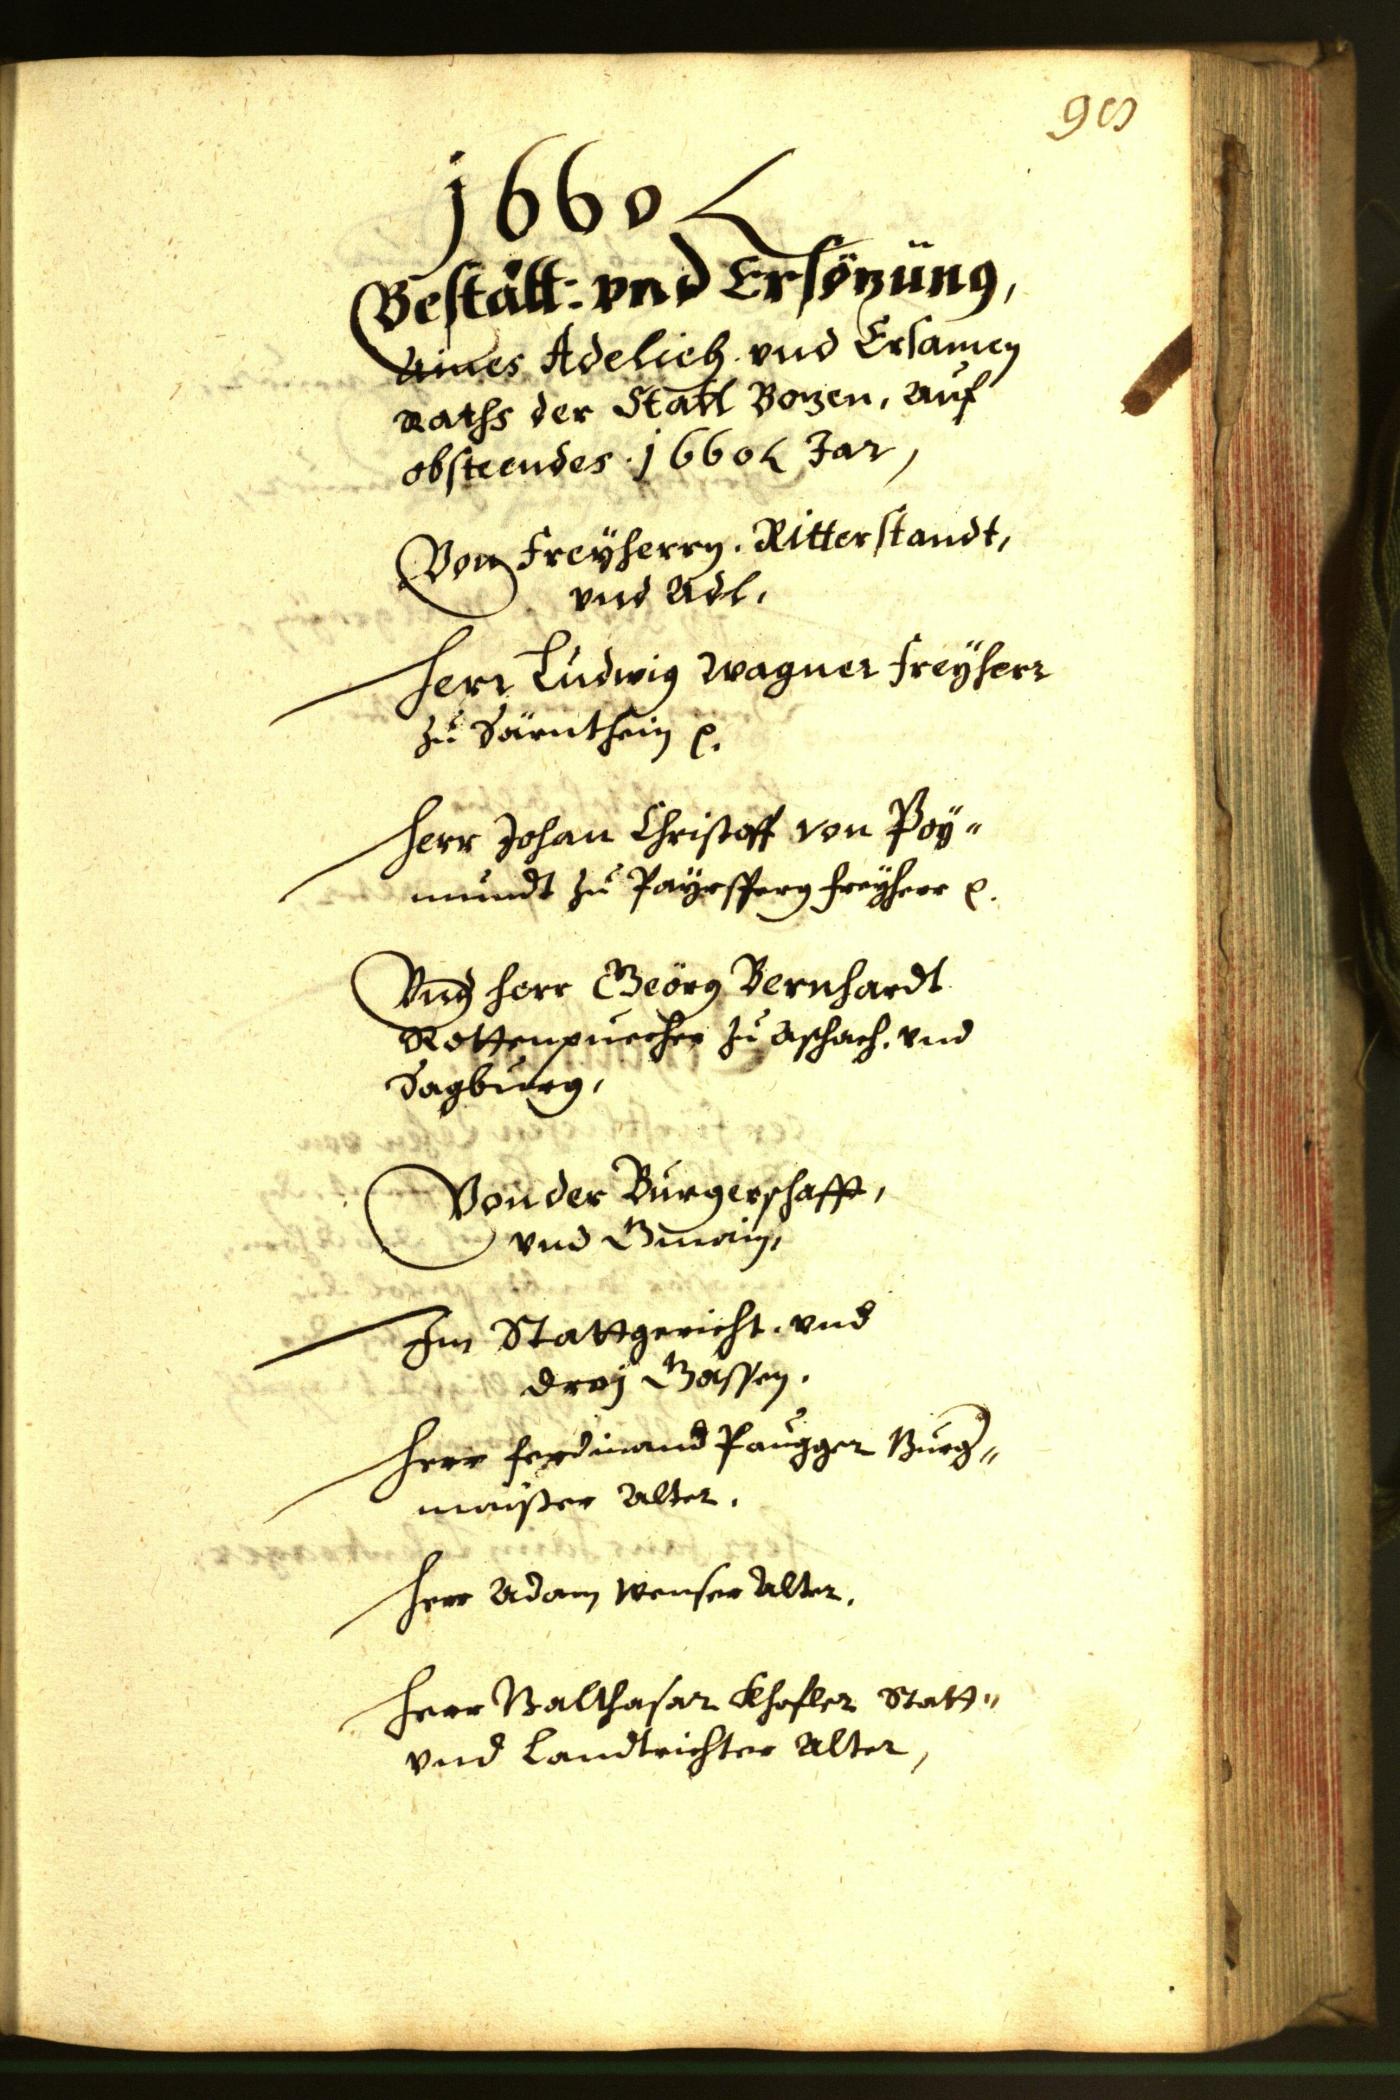 90
1660
Bestätt: vnd Ersözung,
Aines Adelich. vnd Ersamen
Raths der Statt Bozen, Auf
obsteendes 1660 Jar,
Von Freyherrn. Ritterstandt,
vnd Adl,
Herr Ludwig Wagner Freyherr
zu Särnthein p.
Herr Johan Christoff von Poÿ„
mundt zu Paÿrsperg freyherr p.
Vnd Herr Geörg Bernhardt
Rottenpuecher zu Aschach. vnd
Sagburg,
Von der Burgerschafft,
vnd Gmain,
Im Stattgericht. vnd
dreÿ Gassen.
Herr Ferdinand Paugger Burg„
maister Alter.
Herr Adam Wenser Alter.
Herr Balthasar Khofler Statt„
vnd Landtrichter Alter,